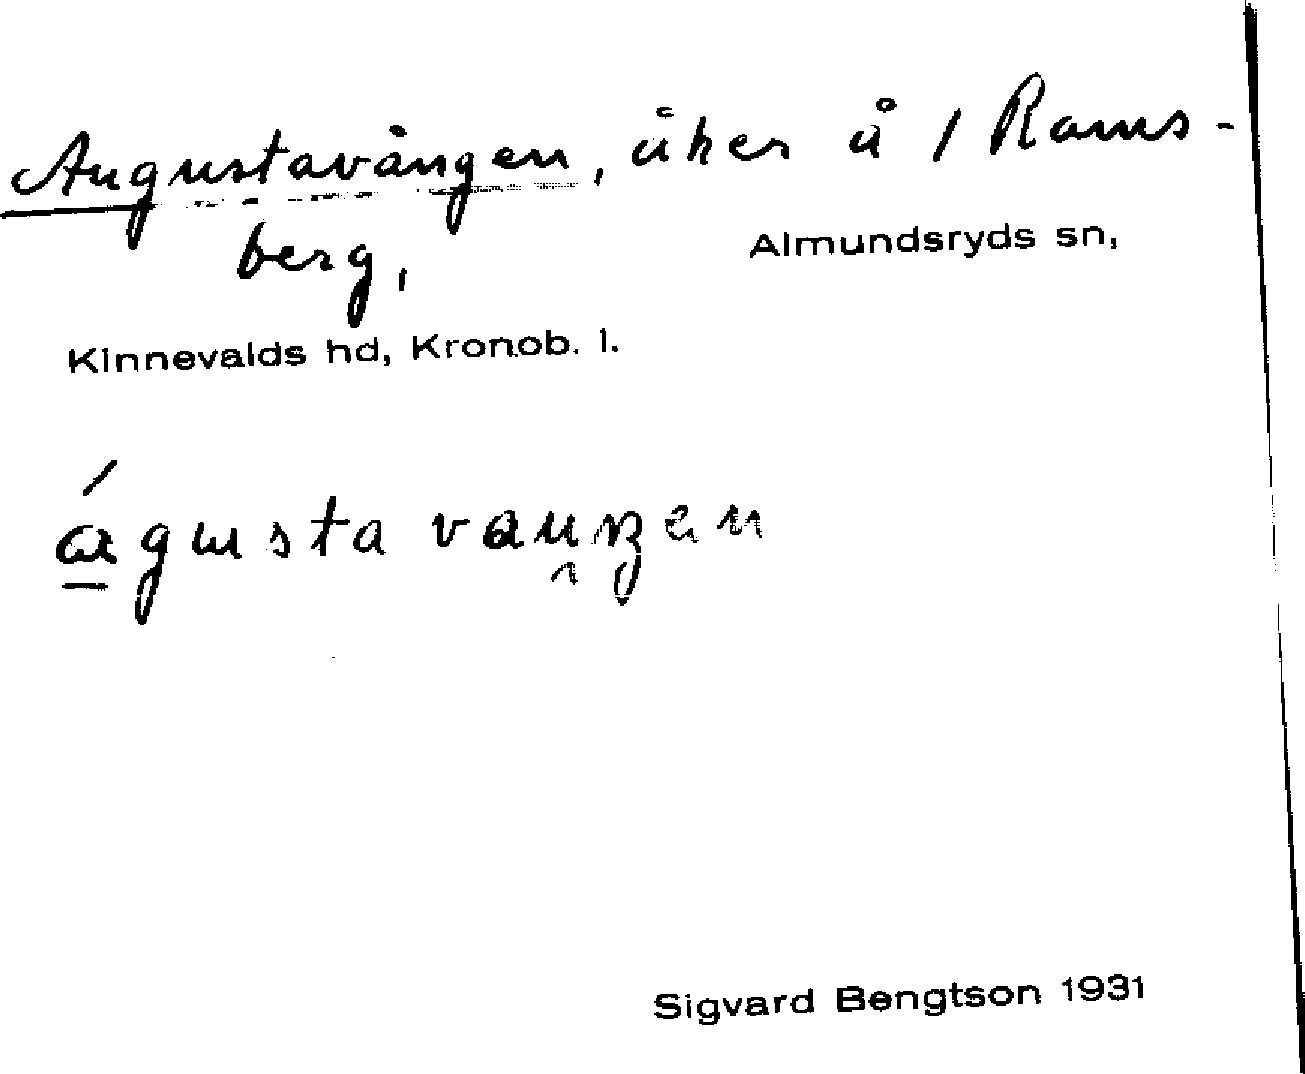 Augustavången, åker å 1 Rams-
berg,
Almundsryds sn,
Kinnevalds hd, Kronob. l.
Sigvard Bengtson 1931